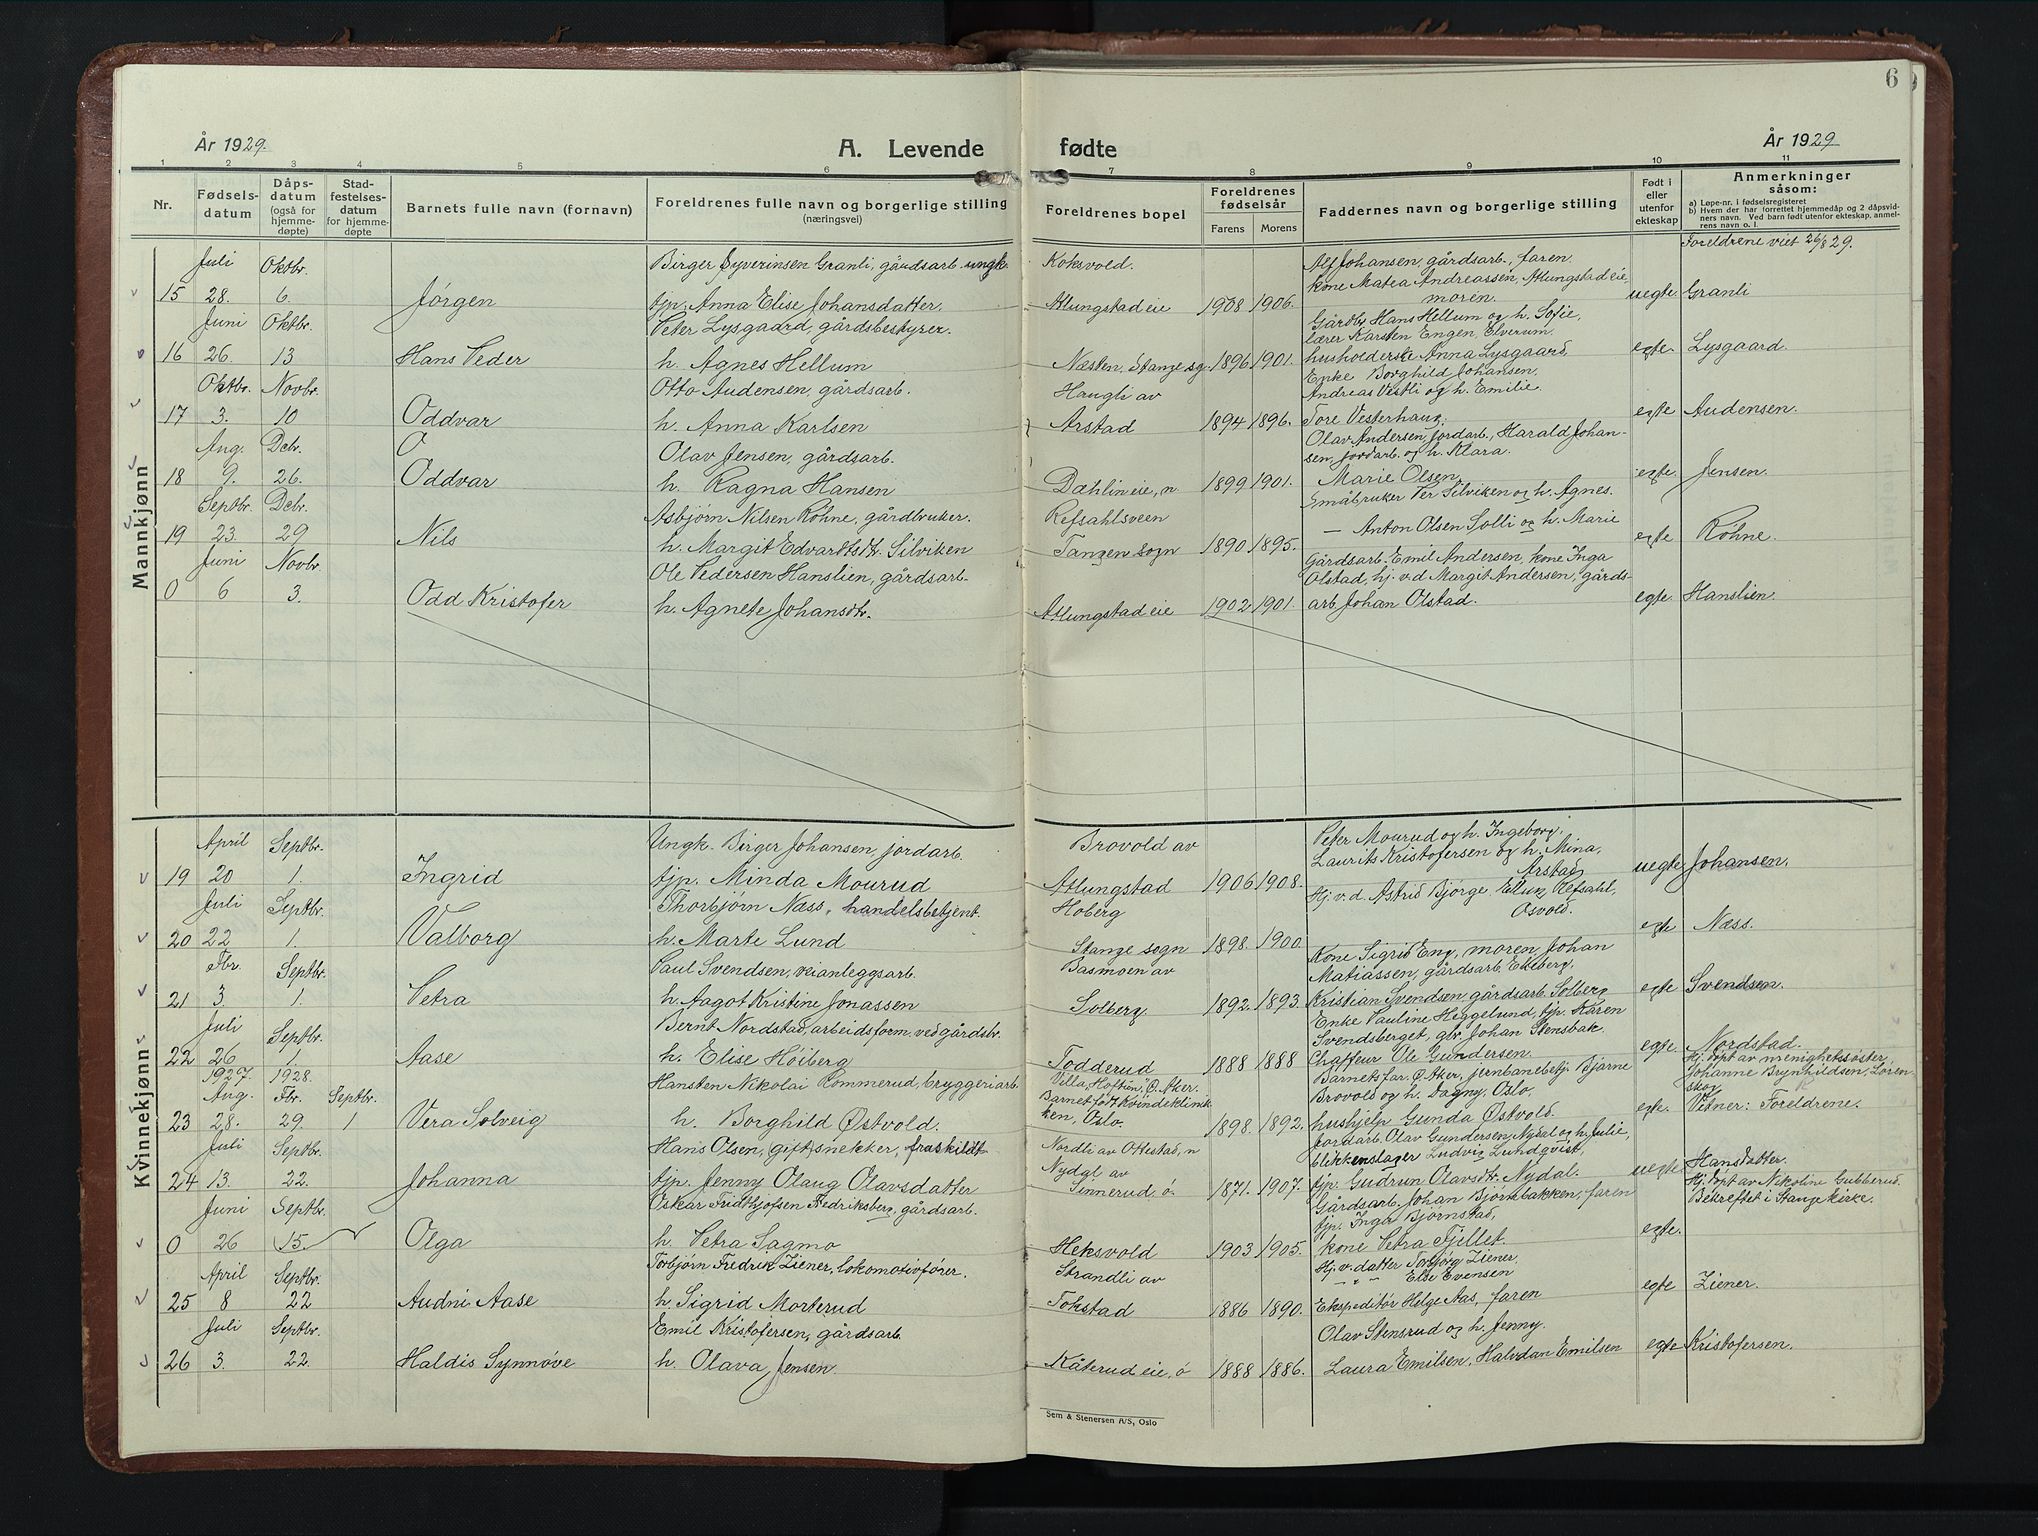 6
År 1929. A. Levende fødte År 1929
1 2 3 4 5 6 7 8 9 10 11
Nr. Fødselsdatum Dåpsdatum (også for hjemmedøpte) Stadfestelsesdatum for hjemmedøpte Barnets fulle navn (fornavn) Foreldrenes fulle navn og borgerlige stilling (næringsvei) Foreldrenes bopel Foreldrenes fødselsår Farens Morens Faddernes navn og borgerlig stilling Født i eller utenfor ekteskap Anmerkninger såsom: a) Løpe-nr. i fødselsregisteret b) Hvem der har forrettet hjemmedåp og 2 dåpsvidners navn. Ved barn født utenfor ekteskap, anmelderens navn o. l.
Mannkjønn
Foreldrene viet 26/8 29.
Juli Oktbr. Birger Syverinsen Granli, gårdsarb. ungk. Koksvold. Alf Johansen, gårdsarb., faren
kone Matea Andreassen, Atlungstad eie,
15 28. 6. Jörgen tjp. Anna Elise Johansdatter. Atlungstad eie 1908 1906. moren. uegte. Granli
Juni Oktbr. Peter Lysgaard, gårdsbestyrer. Gårdbr. Hans Hellum og h. Sofie,
lærer Karsten Engen, Elverum.
16 26 13 Hans Peder h. Agnes Hellum Næsten, Stange sg. 1896 1901. husholderske Anna Lysgaard, egte. Lysgaard.
Oktbr. Novbr. Otto Audensen, gårdsarb. Haugli av Enke Borghild Johansen,
Andreas Vestli og h. Emilie.
17 3. 10 Oddvar h. Anna Karlsen Arstad 1894 1896. Tore Vesterhaug. egte Audensen.
Aug. Debr. O Olav Jensen, gårdsarb. Olav Andersen, jordarb., Harald Johansen, jordarb. og h. Klara.
18 9. 26. Oddvar h. Ragna Hansen Dæhlin eie, n. 1899 1901. Marie Olsen, egte Jensen.
Septbr. Debr. Asbjørn Nilsen Röhne, gårdbruker. Refsahlsveen Småbruker Per Silviken og h. Agnes.
19 23. 29 Nils h. Margit Edvardtsdtr. Silviken Tangen sogn 1890 1895. — Anton Olsen Solli og h. Marie egte Röhne.
Juni Novbr. Ole Pedersen Hanslien, gårdsarb. Gårdsarb. Emil Andersen, kone Inga
Olstad, hj. v. d. Margit Andersen, gårds-
0 6 3. Odd Kristofer h. Agnete Johansdtr. Atlungstad eie 1902 1901. arb Johan Olstad. egte. Hanslien.
Kvinnekjønn
April Septbr. Ungk. Birger Johansen, jordarb. Brovold av Peter Mourud og h. Ingeborg,
Laurits Kristofersen og h. Mina,
19 20 1. Ingrid tjp. Minda Mourud Atlungstad 1906 1908. Arstad uegte Johansen.
Juli Septbr. Thorbjørn Næss, handelsbetjent. Hoberg Hj. v. d. Astrid Bjørge, Refsahl,
Osvold.
20 22 1. Valborg h. Marte Lund Stange sogn 1898. 1900. egte Næss.
Fbr. Septbr. Paul Svendsen, veianleggsarb. Basmoen av Kone Sigrid Eng, moren, Johan
Matiassen, gårdsarb. Ekeberg,
21 3 1. Petra h. Aagot Kristine Jonassen Solberg 1892. 1893. Kristian Svendsen, gårdsarb. Solberg egte Svendsen.
Juli Septbr. Bernt Nordstad, arbeidsform. ved gårdsbr. Enke Pauline Heggelund, tjp. Karen
Svendsberget, gbr. Johan Stensbak.
22 26 1. Aase h. Elise Höiberg Todderud 1888 1888 Chaffeur Ole Gundersen. egte. Nordstad.
1927 1928. Aug. Fbr. Septbr. Hansten Nikolai Hommerud, bryggeriarb. Villa "Hoftun", Ø. Aker. Barnets far. Ø. Aker, jernbanebetj. Bjarne Hj. døpt av menighetssøster,
Barnet født Kvindeklinik- Brovold og h. Dagny, Oslo, Johanne Brynhildsen, Lørenskog
23 28. 29. 1 Vera Solveig h. Borghild Østvold. ken, Oslo. 1898. 1892. hushjelp Gunda Østvold. egte. Vitner: Foreldrene.
Juli Septbr. Hans Olsen, gift, snekker, fraskildt Nordli av Ottestad, n Jordarb. Olav Gundersen, Nydal og h. Julie,
Nydal av blikkenslager Ludvig Lundqvist,
24 13. 22. Johanna tjp. Jenny Olaug Olavsdatter Sinnerud, ö 1871. 1907. tjp. Gudrun Olavsdtr. Nydal. uegte Hansdatter.
Juni Septbr. Oskar Fridthjofsen Fredriksberg, gårdsarb. Gårdsarb. Johan Björnbakken, faren Hj. døpt av Nikoline Gubberud.
tjp. Inga Bjørnstad, Bekreftet i Stange kirke.
0 26 15. Olga h. Petra Sagmo Heksvold 1903 1905. kone Petra Fjillet. egte.
April Septbr. Torbjørn Fredrik Ziener, lokomotivfører. Strandli av Hj. v. datter Torbjørg Ziener,
— " — " Else Evensen
25 8 22 Audni Aase h. Sigrid Morterud Tokstad 1886 1890. Ekspeditör Helge Aas, faren egte Ziener.
Juli Septbr. Emil Kristofersen, gårdsarb. Olav Stensrud og h. Jenny.
26 3. 22. Haldis Synnöve h. Olava Jensen. Kåterud eie, ö 1888 1886. Laura Emilsen, Halvdan Emilsen egte Kristofersen.
Sem & Stenersen A/S, Oslo